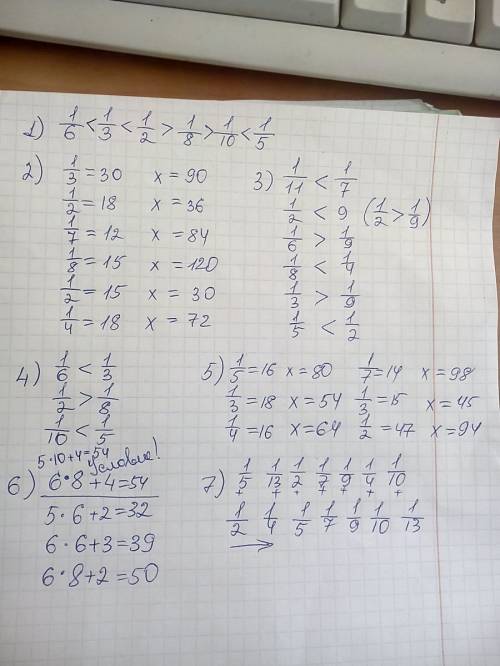 1) 1/6 < 1/3 < 1/2 > 1/8 > 1/10 < 1/5
2) 1/3 = 30 x = 90
1/2 = 18 x = 36
1/7 = 12 x = 84
1/8 = 15 x = 120
1/2 = 15 x = 30
1/4 = 18 x = 72
3) 1/11 < 1/7
1/2 < 9 (1/2 > 1/9)
1/6 > 1/9
1/8 < 1/4
1/3 > 1/9
1/5 < 1/2
4) 1/6 < 1/3
1/2 > 1/8
1/10 < 1/5
5) 1/5 = 16 x = 80 1/7 = 14 x = 98
1/3 = 18 x = 54 1/3 = 15 x = 45
1/4 = 16 x = 64 1/2 = 47 x = 94
5·10+4=54
условие!
6) 6·8+4=54
5·6+2=32
6·6+3=39
6·8+2=50
7) 1/5 1/13 1/2 1/7 1/9 1/4 1/10
+ + + + + + +
1/2 1/4 1/5 1/7 1/9 1/10 1/13
→